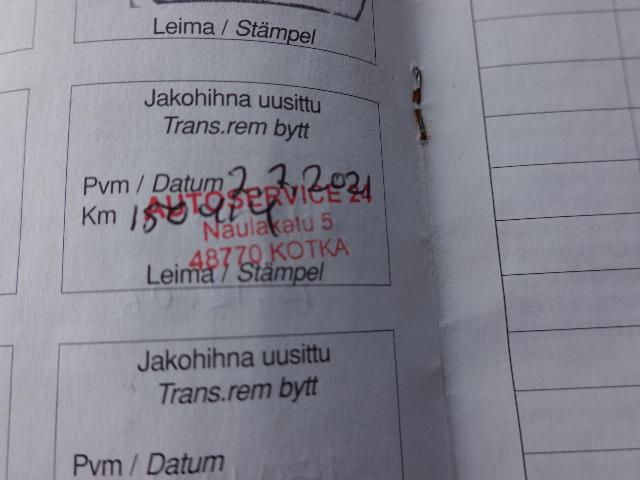 Leima / Stämpel
Jakohihna uusittu
Trans.rem bytt
Pvm / Datum 2.7.2021
AUTOSERVICE 24
Km
Naulakatu 5
48770 KOTKA
Leima / Stämpel
Jakohihna uusittu
Trans.rem bytt
Pvm / Datum